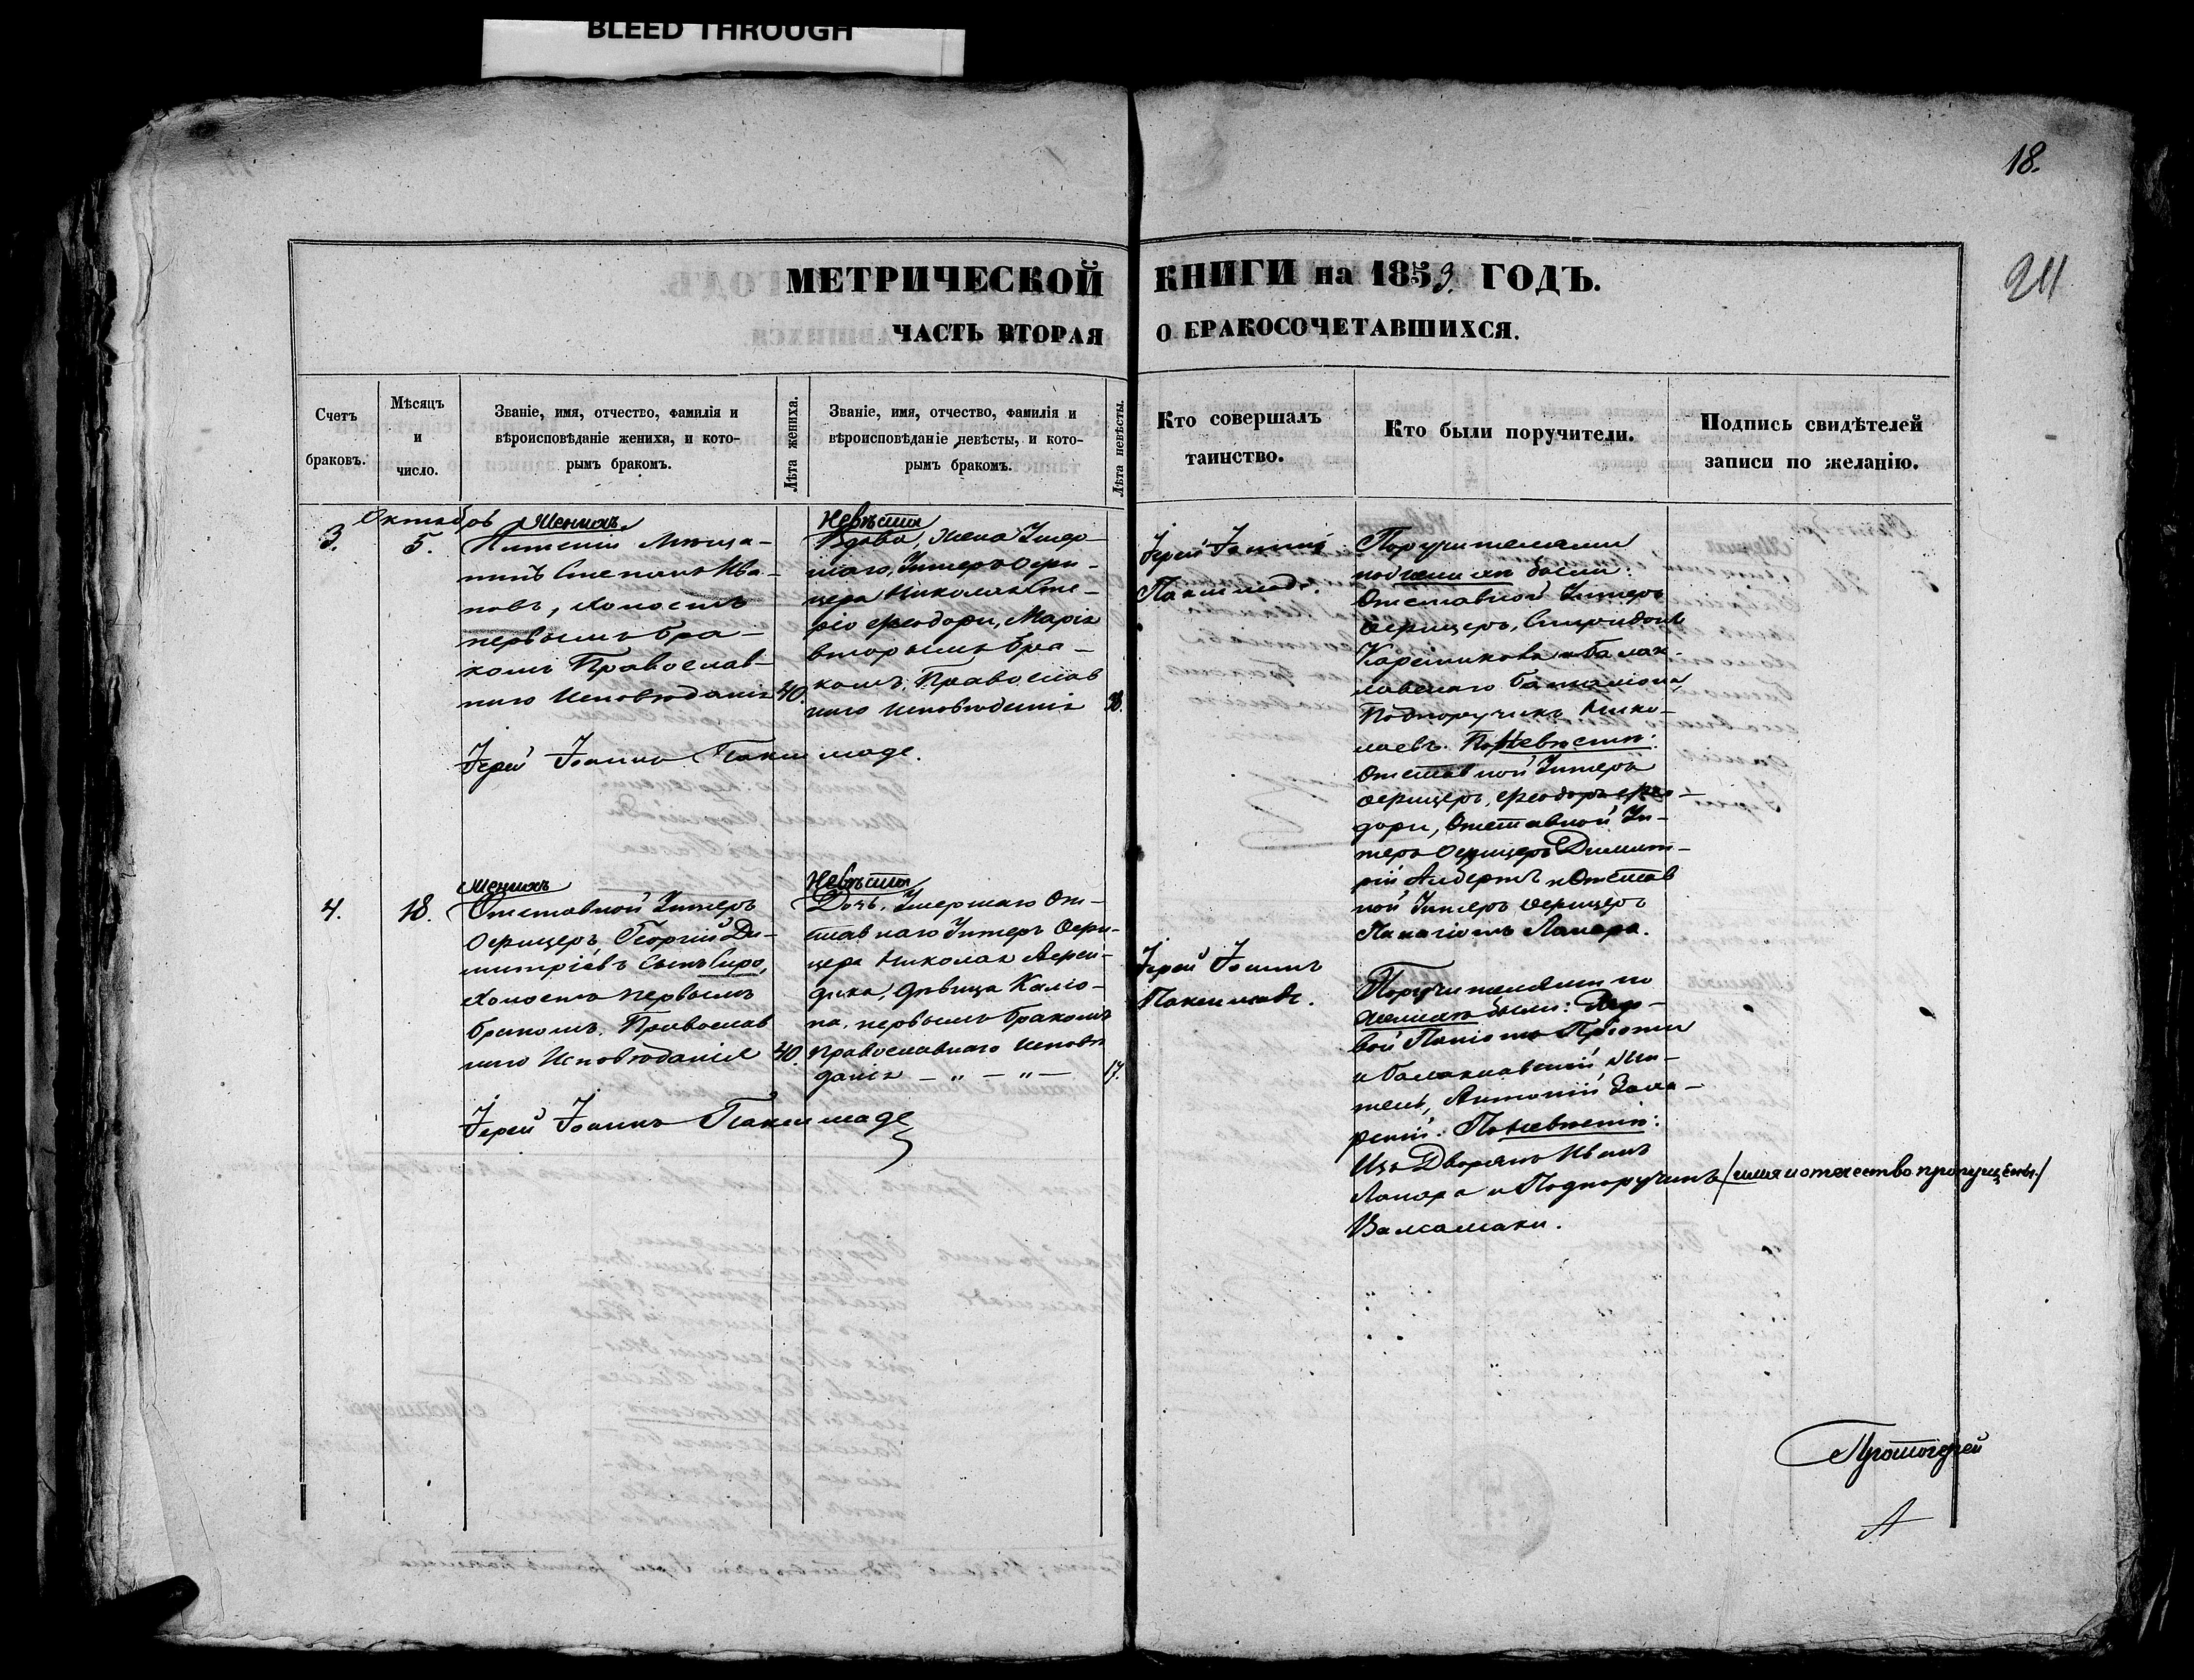 BLEED THROUGH
18.
211
МЕТРИЧЕСКОЙ КНИГИ на 1859. ГОДЪ.
ЧАСТЬ ВТОРАЯ О БРАКОСОЧЕТАВШИХСЯ.
Счетъ
и
браковъ.
Мѣсяцъ
и
число.
Званіе, имя, отчество, фамилія и
вѣроисповѣданіе жениха, и кото-
рымъ бракомъ.
Лѣта жениха.
Званіе, имя, отчество, фамилія и
вѣроисповѣданіе невѣсты, и кото-
рымъ бракомъ.
Лѣта невѣсты.
Кто совершалъ
таинство.
Кто были поручители.
Подпись свидѣтелей
записи по желанію.
Октябрь
3.
5.
Женихъ.
мѣща-
нинъ Степанъ Ива-
новъ, холостъ
первымъ бра-
комъ Православ-
наго Исповѣданія
40.
Невѣста
Вдова, жена Умер-
шаго, Унтеръ Офи-
цера Николая
Феодори, Марія
вторымъ бра-
комъ, Православ
наго исповѣданія
38.
Іерей Іоаннъ
Паксимаде.
Поручителями
по женихѣ были:
Отставной Унтеръ
Офицеръ, Спиридонъ
и Балак-
лавскаго баталіона,
Подпоручикъ Нико-
лаевъ. По Невѣстѣ:
Отставной Унтеръ
Офицеръ, Феодоръ Фео-
дори, Отставной Ун-
теръ Офицеръ Димит-
рій Альбертъ и Отстав
ной Унтеръ Офицеръ
Панагіотъ Лапара.
Іерей Іоаннъ Паксимаде.
4.
18.
Женихъ
Отставной Унтеръ
Офицеръ, Георгій Ди-
митріевъ Сынъ Сиро,
холостъ первымъ
бракомъ. Православ
наго Исповѣданія
40.
Невѣста
Дочь, Умершаго От-
ставнаго Унтеръ Офи-
цера Николая
дѣвица Каліо-
па, первымъ бракомъ
православнаго исповѣ
данія — „ — „ —
17.
Іерей Іоаннъ
Паксимаде.
Поручителями по
женихѣ были:
и Балаклавскій Жи-
тель, Антоній
По невѣстѣ:
Изъ Дворянъ Иванъ
Лапара и Подпоручикъ /имя и отчество пропущены./
Валамаки.
Іерей Іоаннъ Паксимаде
Протоіерей
А